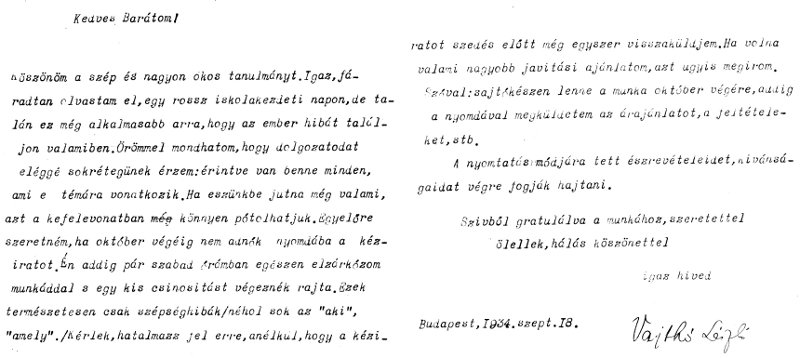 Kedves Barátom!
köszönöm a szép és nagyon okos tanulmányt.Igaz,fá-
radtan olvastam el,egy rossz iskolakezdeti napon,de ta-
lán ez még alkalmasabb arra,hogy az ember hibát talál-
jon valamiben.Örömmel mondhatom,hogy dolgozatodat
eléggé sokrétegünek érzem:érintve van benne minden,
ami e témára vonatkozik.Ha eszünkbe jutna még valami,
azt a kefelevonatban még könnyen pótolhatjuk.Egyelőre
szeretném,ha október végéig nem adnók nyomdába a kéz-
iratot.Én addig pár szabad órámban egészen elzárkózom
munkáddal s egy kis csinositást végeznék rajta.Ezek
természetesen csak szépséghibák/néhol sok az "aki",
"amely"./Kérlek,hatalmazz jel erre,anélkül,hogy a kézi-
ratot szedés előtt még egyszer visszaküldjem.Ha volna
valami nagyobb javitási ajánlatom,azt ugyis megirom.
Szóval:sajtókészen lenne a munka október végére,addig
a nyomdával megküldetem az árajánlatot,a feltétele-
ket,stb.
A nyomtatás módjára tett észrevételeidet,kivánsá-
gaidat végre fogják hajtani.
Szivből gratulálva a munkához,szeretettel
ölellek,hálás köszönettel
igaz hived
Budapest,1934.szept.18.
Vajthó László